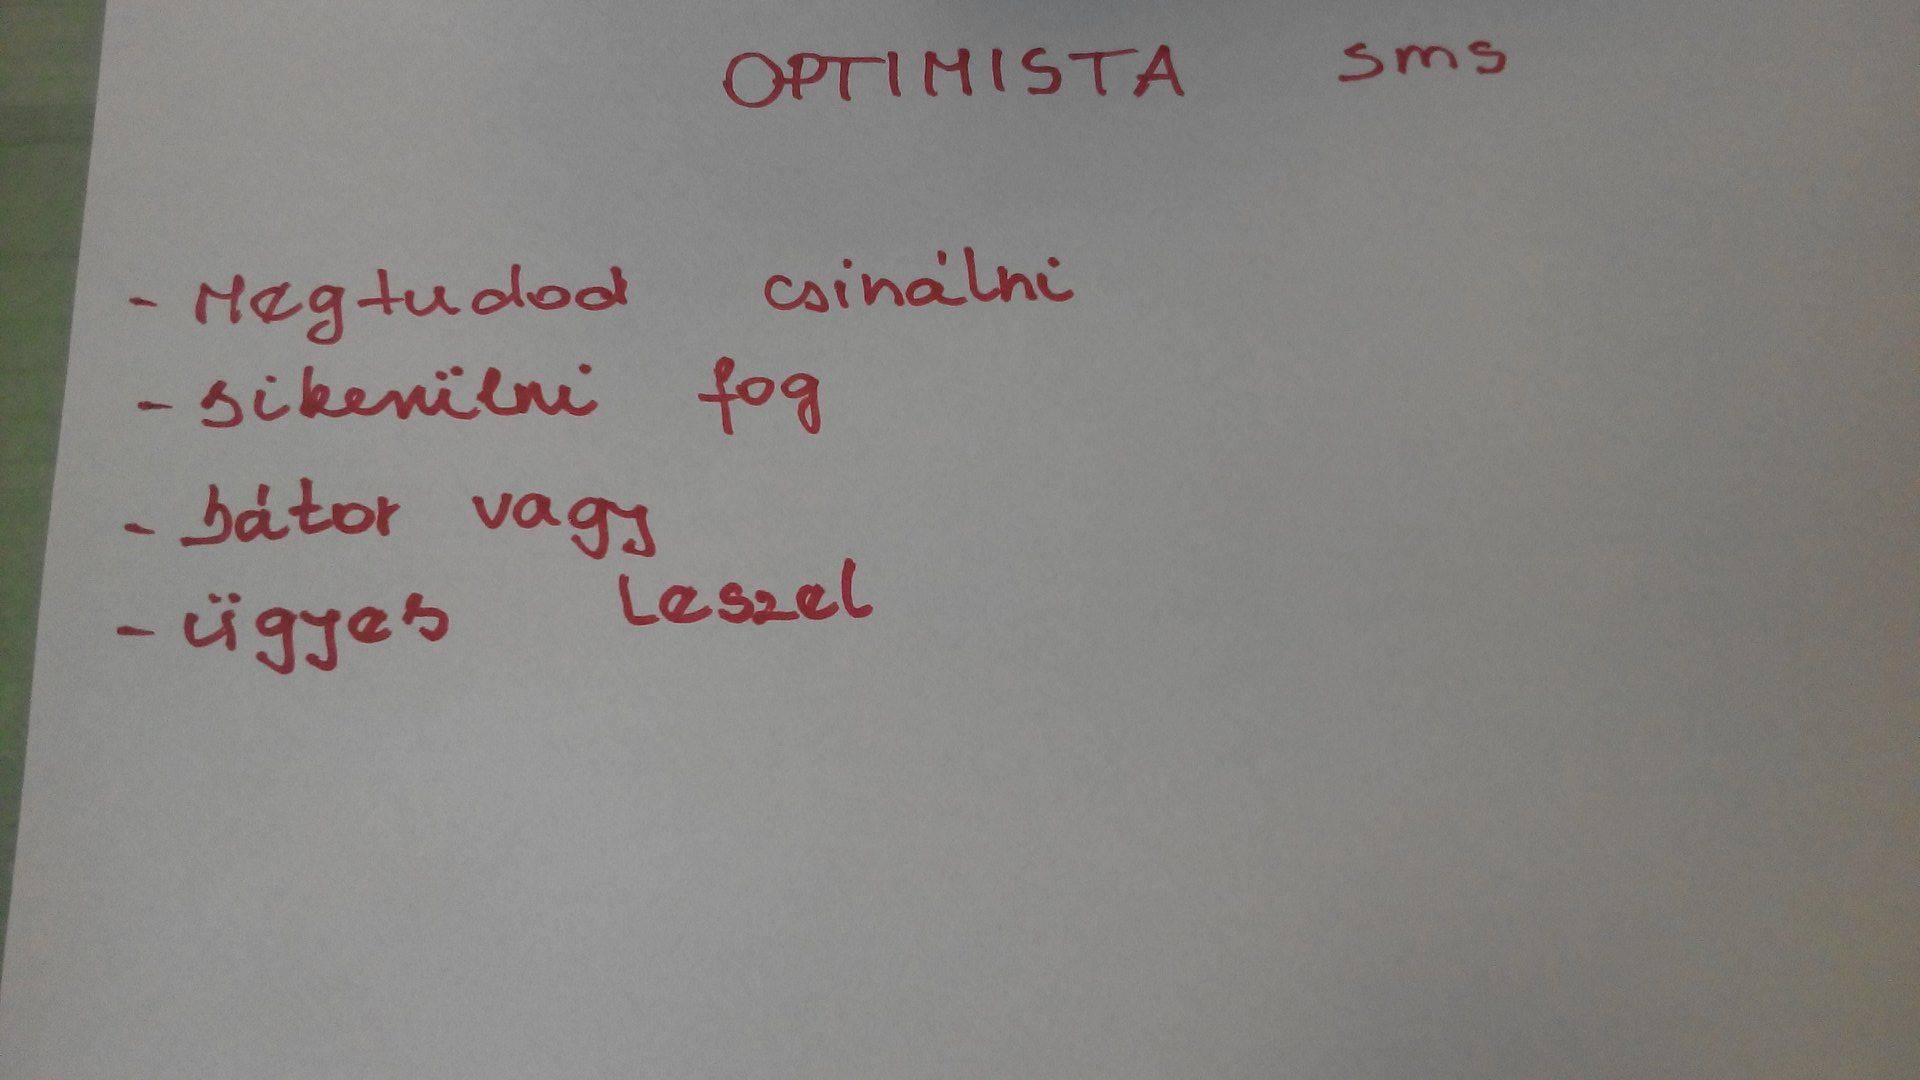 OPTIMISTA sms
- Megtudod csinálni
- sikerülni fog
- bátor vagy
- ügyes Leszel